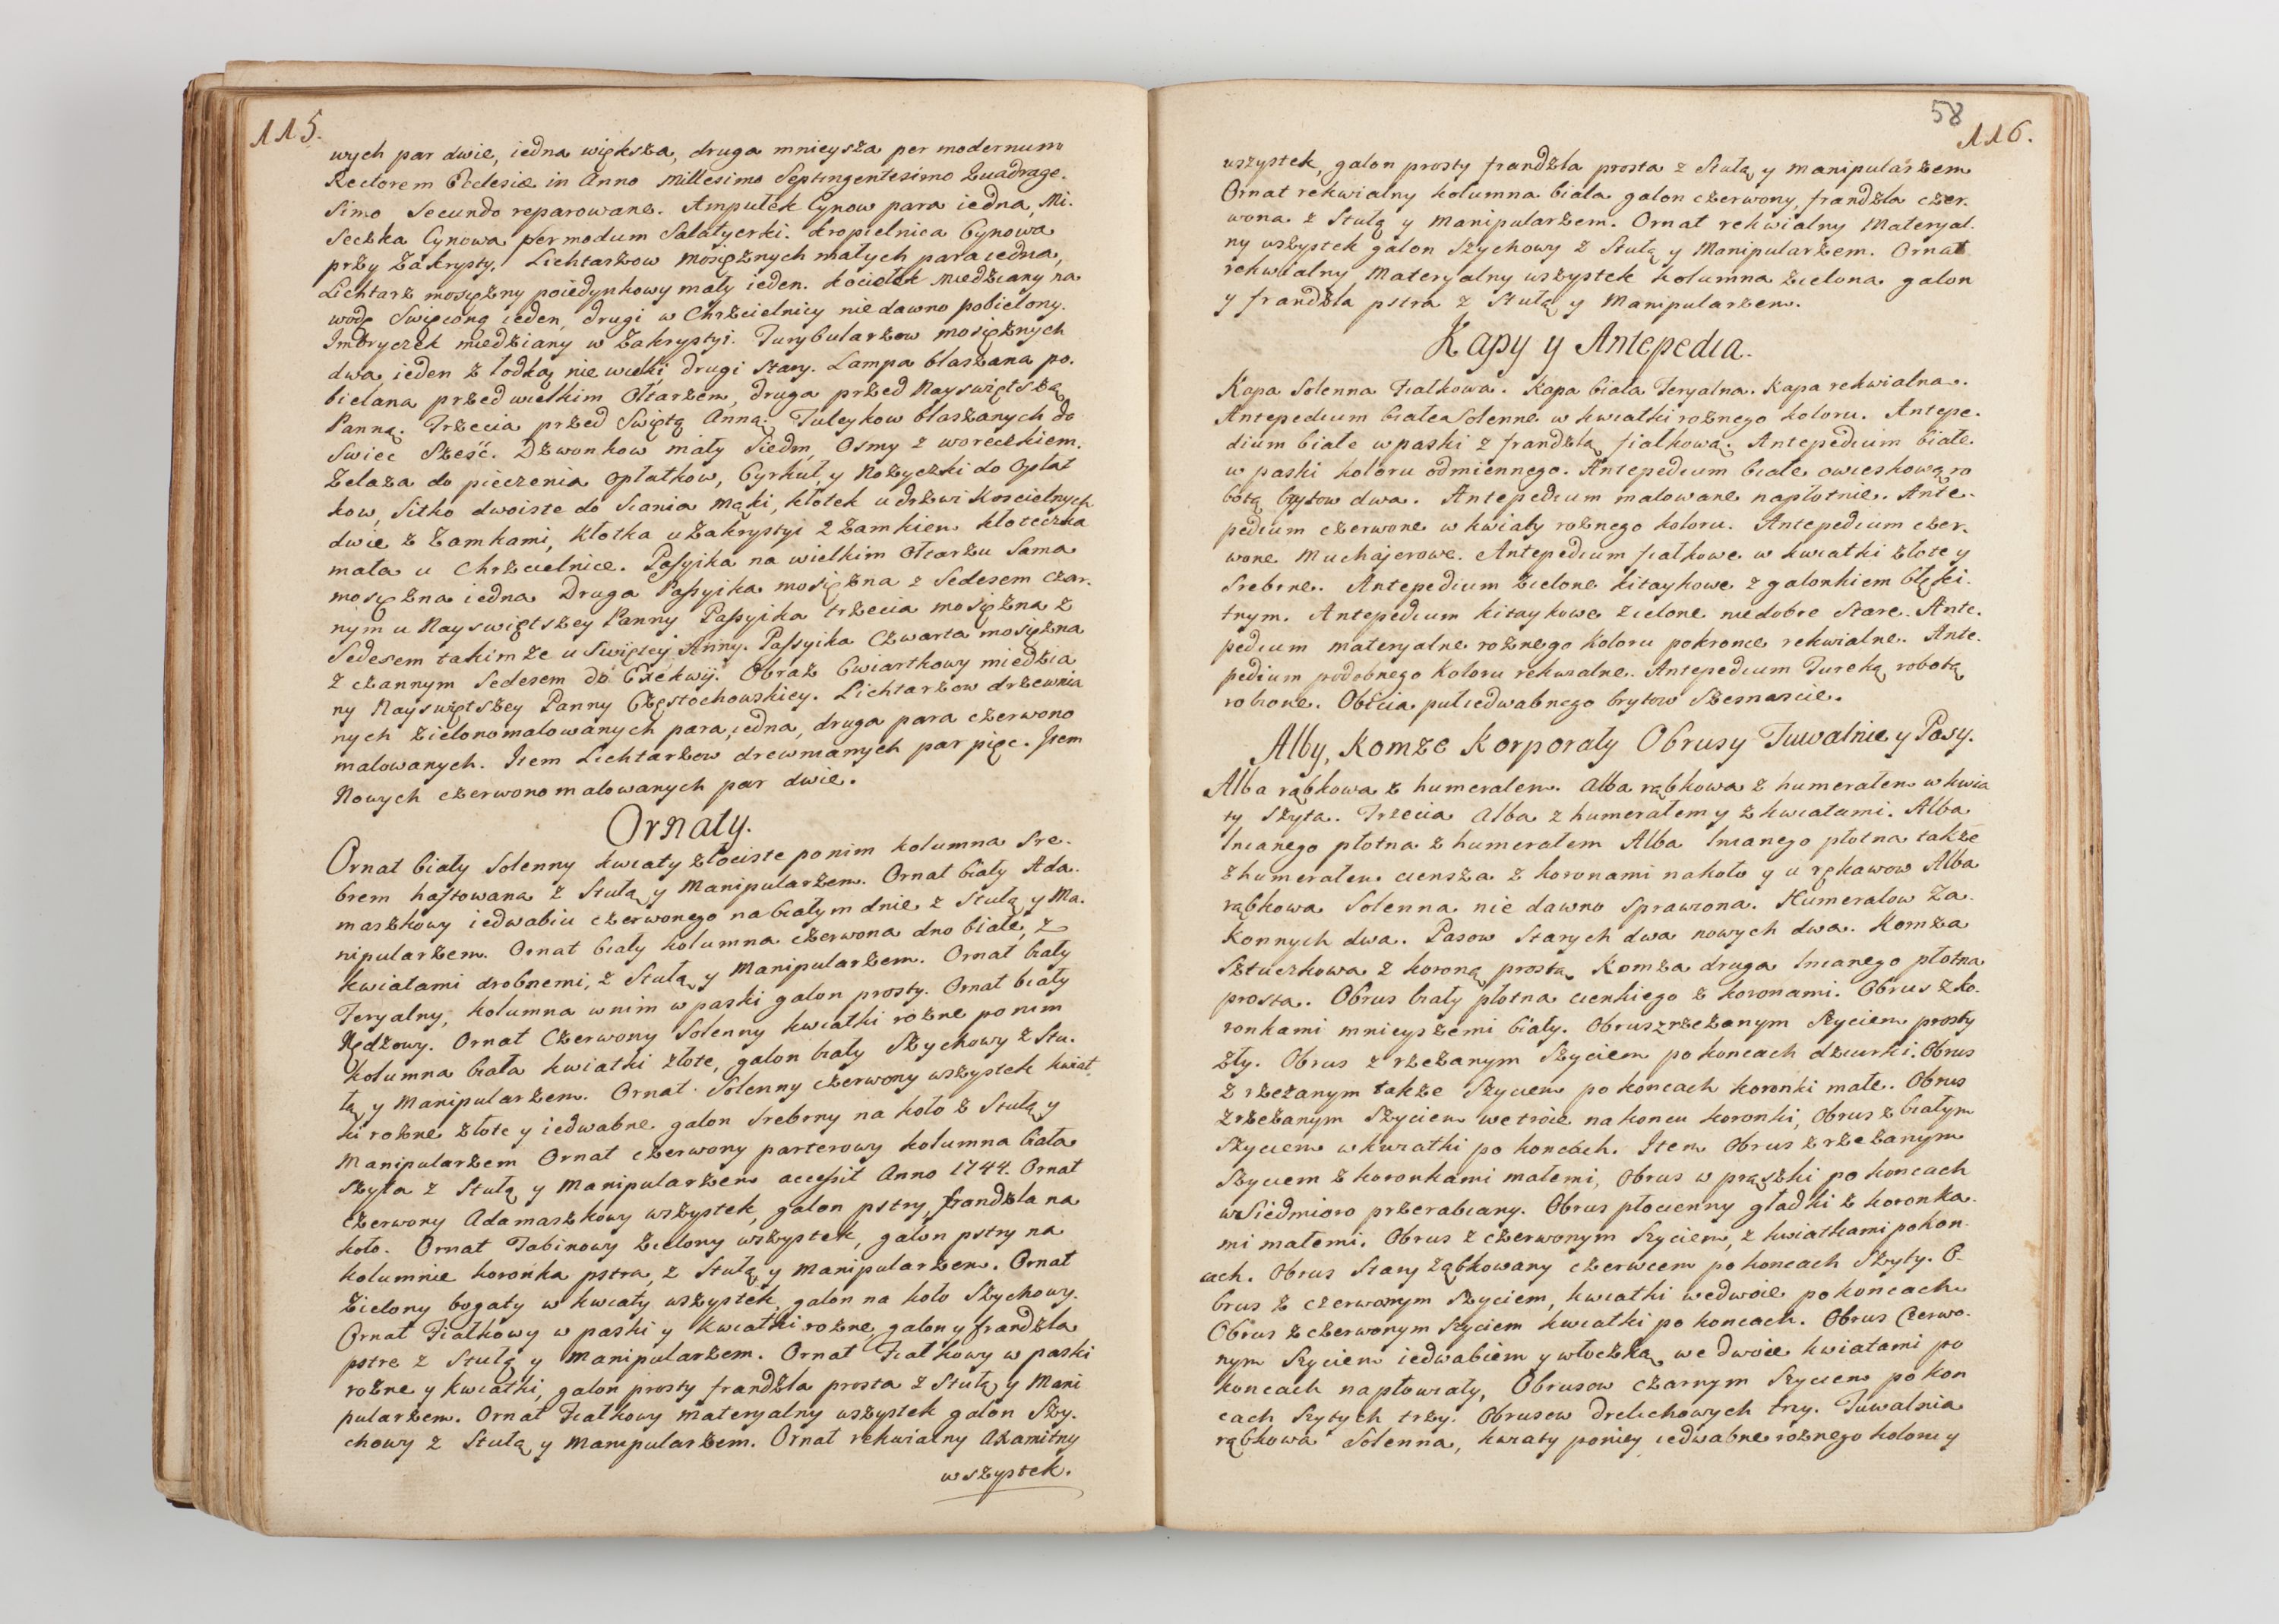 115.
wych par dwie, iedna większa, druga mnieysza per modernum
Rectorem Ecclesiæ in Anno Millesimo Septingentesimo Quadrage.
simo Secundo reparowane. Ampułek Cynow para iedna, Mi.
seczka Cynowa per modum Salatyerki. Kropielnica Cynowa
przy Zakrysty. Lichtarzow mosiężnych małych para iedna,
Lichtarz mosiężny poiedynkowy mały ieden. Kociełek Miedziany na
wodę Swięconą ieden, drugi w Chrzcielnicy nie dawno pobielony.
Imbryczek miedziany w Zakrystyi. Turybularzow mosiężnych
dwa ieden z łodką nie wielki drugi stary. Lampa blaszana po.
bielana przed wielkim Ołtarzem, druga przed Nayswiętszą
Panną. Trzecia przed Swiętą Anną. Tuleykow blaszanych do
Swiec Sześć. Dzwonkow mały Siedm, Osmy z woreczkiem.
Zelaza do pieczenia opłatkow, Cyrkuł, y Nożyczki do Opłat
kow, Sitko dwoiste do siania Mąki, kłotek u drzwi Koscielnych
dwie z Zamkami, Kłotka u Zakrystyi 2 Zamkiem kłoteczka
mała u Chrzcielnice. Passyika na wielkim Ołtarzu Sama
mosiężna iedna Druga Passyika mosiężna z Sedesem czar.
nym u Nayswiętszey Panny Passyika trzecia mosiężna z
Sedesem takimze u Swiętey Anny. Passyika Czwarta mosiężna
z czarnym Sedesem do Exekwij. Obraz Cwiartkowy miedzia
ny Nayswiętszey Panny Częstochowskiey. Lichtarzow drzewnia
nych Zielono malowanych para iedna, druga para czerwono
malowanych. Item Lichtarzow drewnianych par pięc. Item
Nowych czerwono malowanych par dwie.
Ornaty.
Ornat biały Solenny kwiaty złociste po nim kolumna Sre.
brem haftowana z Stułą y Manipularzem. Ornat biały Ada.
maszkowy iedwabiu czerwonego na białym dnie z Stułą y Ma.
nipularzem. Ornat biały kolumna czerwona dno białe, z
kwiatami drobnemi, z Stułą y Manipularzem. Ornat biały
Teryalny, kolumna w nim w paski galon prosty. Ornat biały
Ornat Czerwony Solenny kwiatki rozne po nim
kolumna biała kwiatki złote, galon biały Szychowy z Stu.
łą y Manipularzem. Ornat Solenny czerwony wszystek kwiat
ki rozne złote y iedwabne galon Srebrny na koło z Stułą y
Manipularzem Ornat czerwony parterowy kolumna biała
Szyta z Stułą y Manipularzem accessit Anno 1744. Ornat
Czerwony Adamaszkowy wszystek, galon pstry, frandzla na
koło. Ornat Tabinowy Zielony wszystek, galon pstry na
kolumnie koronka pstra, z Stułą y Manipularzem. Ornat
Zielony bogaty w kwiaty wszystek, galon na koło Szychowy.
Ornat Fiałkowy w paski y kwiatki rozne, galon y frandzla
pstre z Stułą y Manipularzem. Ornat Fiałkowy w paski
rozne y kwiatki, galon prosty frandzla prosta z Stułą y Mani
pularzem. Ornat Fiałkowy materyalny wszystek galon Szy.
chowy z Stułą y Manipularzem. Ornat rekwialny Axamitny
wszystek.
58
116.
wszystek, galon prosty frandzla prosta z Stułą y manipularzem
Ornat rekwialny kolumna biała galon czerwony, frandzla czer.
wona z Stułą y Manipularzem. Ornat rekwialny Materyal.
ny wszystek galon Szychowy z Stułą y Manipularzem. Ornat
rekwialny Materyalny wszystek kolumna zielona galon
y frandzla pstra z Stułą y Manipularzem.
Kapy y Antepedia.
Kapa Solenna Fiałkowa. Kapa biała Teryalna. Kapa rekwialna.
Antepedium białe Solenne w kwiatki roznego koloru. Antepe.
dium białe w paski z frandzlą fiałkową. Antepedium białe
w paski koloru odmiennego. Antepedium białe ro
botą brytow dwa. Antepedium malowane na płotnie. Ante.
pedium czerwone w kwiaty roznego koloru. Antepedium czer.
wone Muchajerowe. Antepedium fiałkowe w kwiatki złote y
Srebrne. Antepedium zielone kitaykowe z galonkiem błęki.
tnym. Antepedium kitaykowe zielone niedobre Stare. Ante.
pedium materyalne roznego koloru pokronce rekwialne. Ante.
pedium podobnego koloru rekwialne. Antepedium Turecką robotą
robione. Obicia pułiedwabnego brytow Szesnascie.
Alby, Komze Korporały Obrusy Tuwalnie y Pasy.
Alba rąbkowa z humerałem. Alba rąbkowa z humerałem w kwia
ty Szyta. Trzecia Alba z humerałem y z kwiatami. Alba
lnianego płotna z humerałem Alba lnianego płotna także
z humerałem ciensza z koronami na koło y u rękawow Alba
rąbkowa Solenna nie dawno Sprawiona. Humerałow Za.
konnych dwa. Pasow Starych dwa nowych dwa. Komza
Sztuczkowa z koroną prostą Komza druga lnianego płotna
prosta. Obrus biały płotna cienkiego z koronami. Obrus z ko.
ronkami mnieyszemi biały. Obrus z rzezanym Szyciem prosty
zły. Obrus z rzezanym Szyciem po koncach dziurki. Obrus
z rzezanym także Szyciem po koncach koronki małe. Obrus
z rzezanym Szyciem we troie na koncu koronki, Obrus z białym
Szyciem w kwiatki po koncach. Item Obrus z rzezanym
Szyciem z koronkami małemi, Obrus w prążki po koncach
w Siedmioro przerabiany. Obrus płocienny gładki z koronka.
mi małemi. Obrus z czerwonym Szyciem, z kwiatkami po kon.
cach. Obrus Stary ząbkowany czerwcem po koncach Szyty. O.
brus z czerwonym Szyciem, kwiatki wedwoie po koncach
Obrus z czerwonym Szyciem kwiatki po koncach. Obrus Czerwo.
nym Szyciem iedwabiem y włoczką we dwoie kwiatami po
koncach napłowiały, Obrusow czarnym Szyciem po kon
cach Szytych trzy. Obrusow drelichowych trzy. Tuwalnia
rąbkowa Solenna, kwiaty poniey iedwabne roznego koloru y